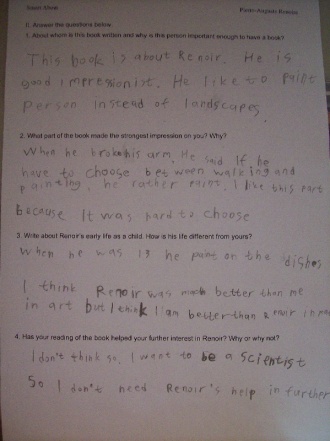 Pierre-Auguste Renoir
Answer the questions below.
1. About whom is this book written and why is this person important enough to have a book?
This book is about Renoir. He is
good impressionist. He like to paint
person instead of landscapes.
2. What part of the book made the strongest impression on you? Why?
When he broke his arm, He said If he
have to choose between walking and
painting, he rather paint. I like this part
because It was hard to choose
3. Write about Renoir's early life as a child. How is his life different from yours?
When he was 13 he paint on the dishes
I think Renoir was much better than me
in art but I think I am better than Renoir in
4. Has your reading of the book helped your further interest in Renoir? Why or why not?
I don't think so. I want to be a scientist
So I don't need Renoir's help in further